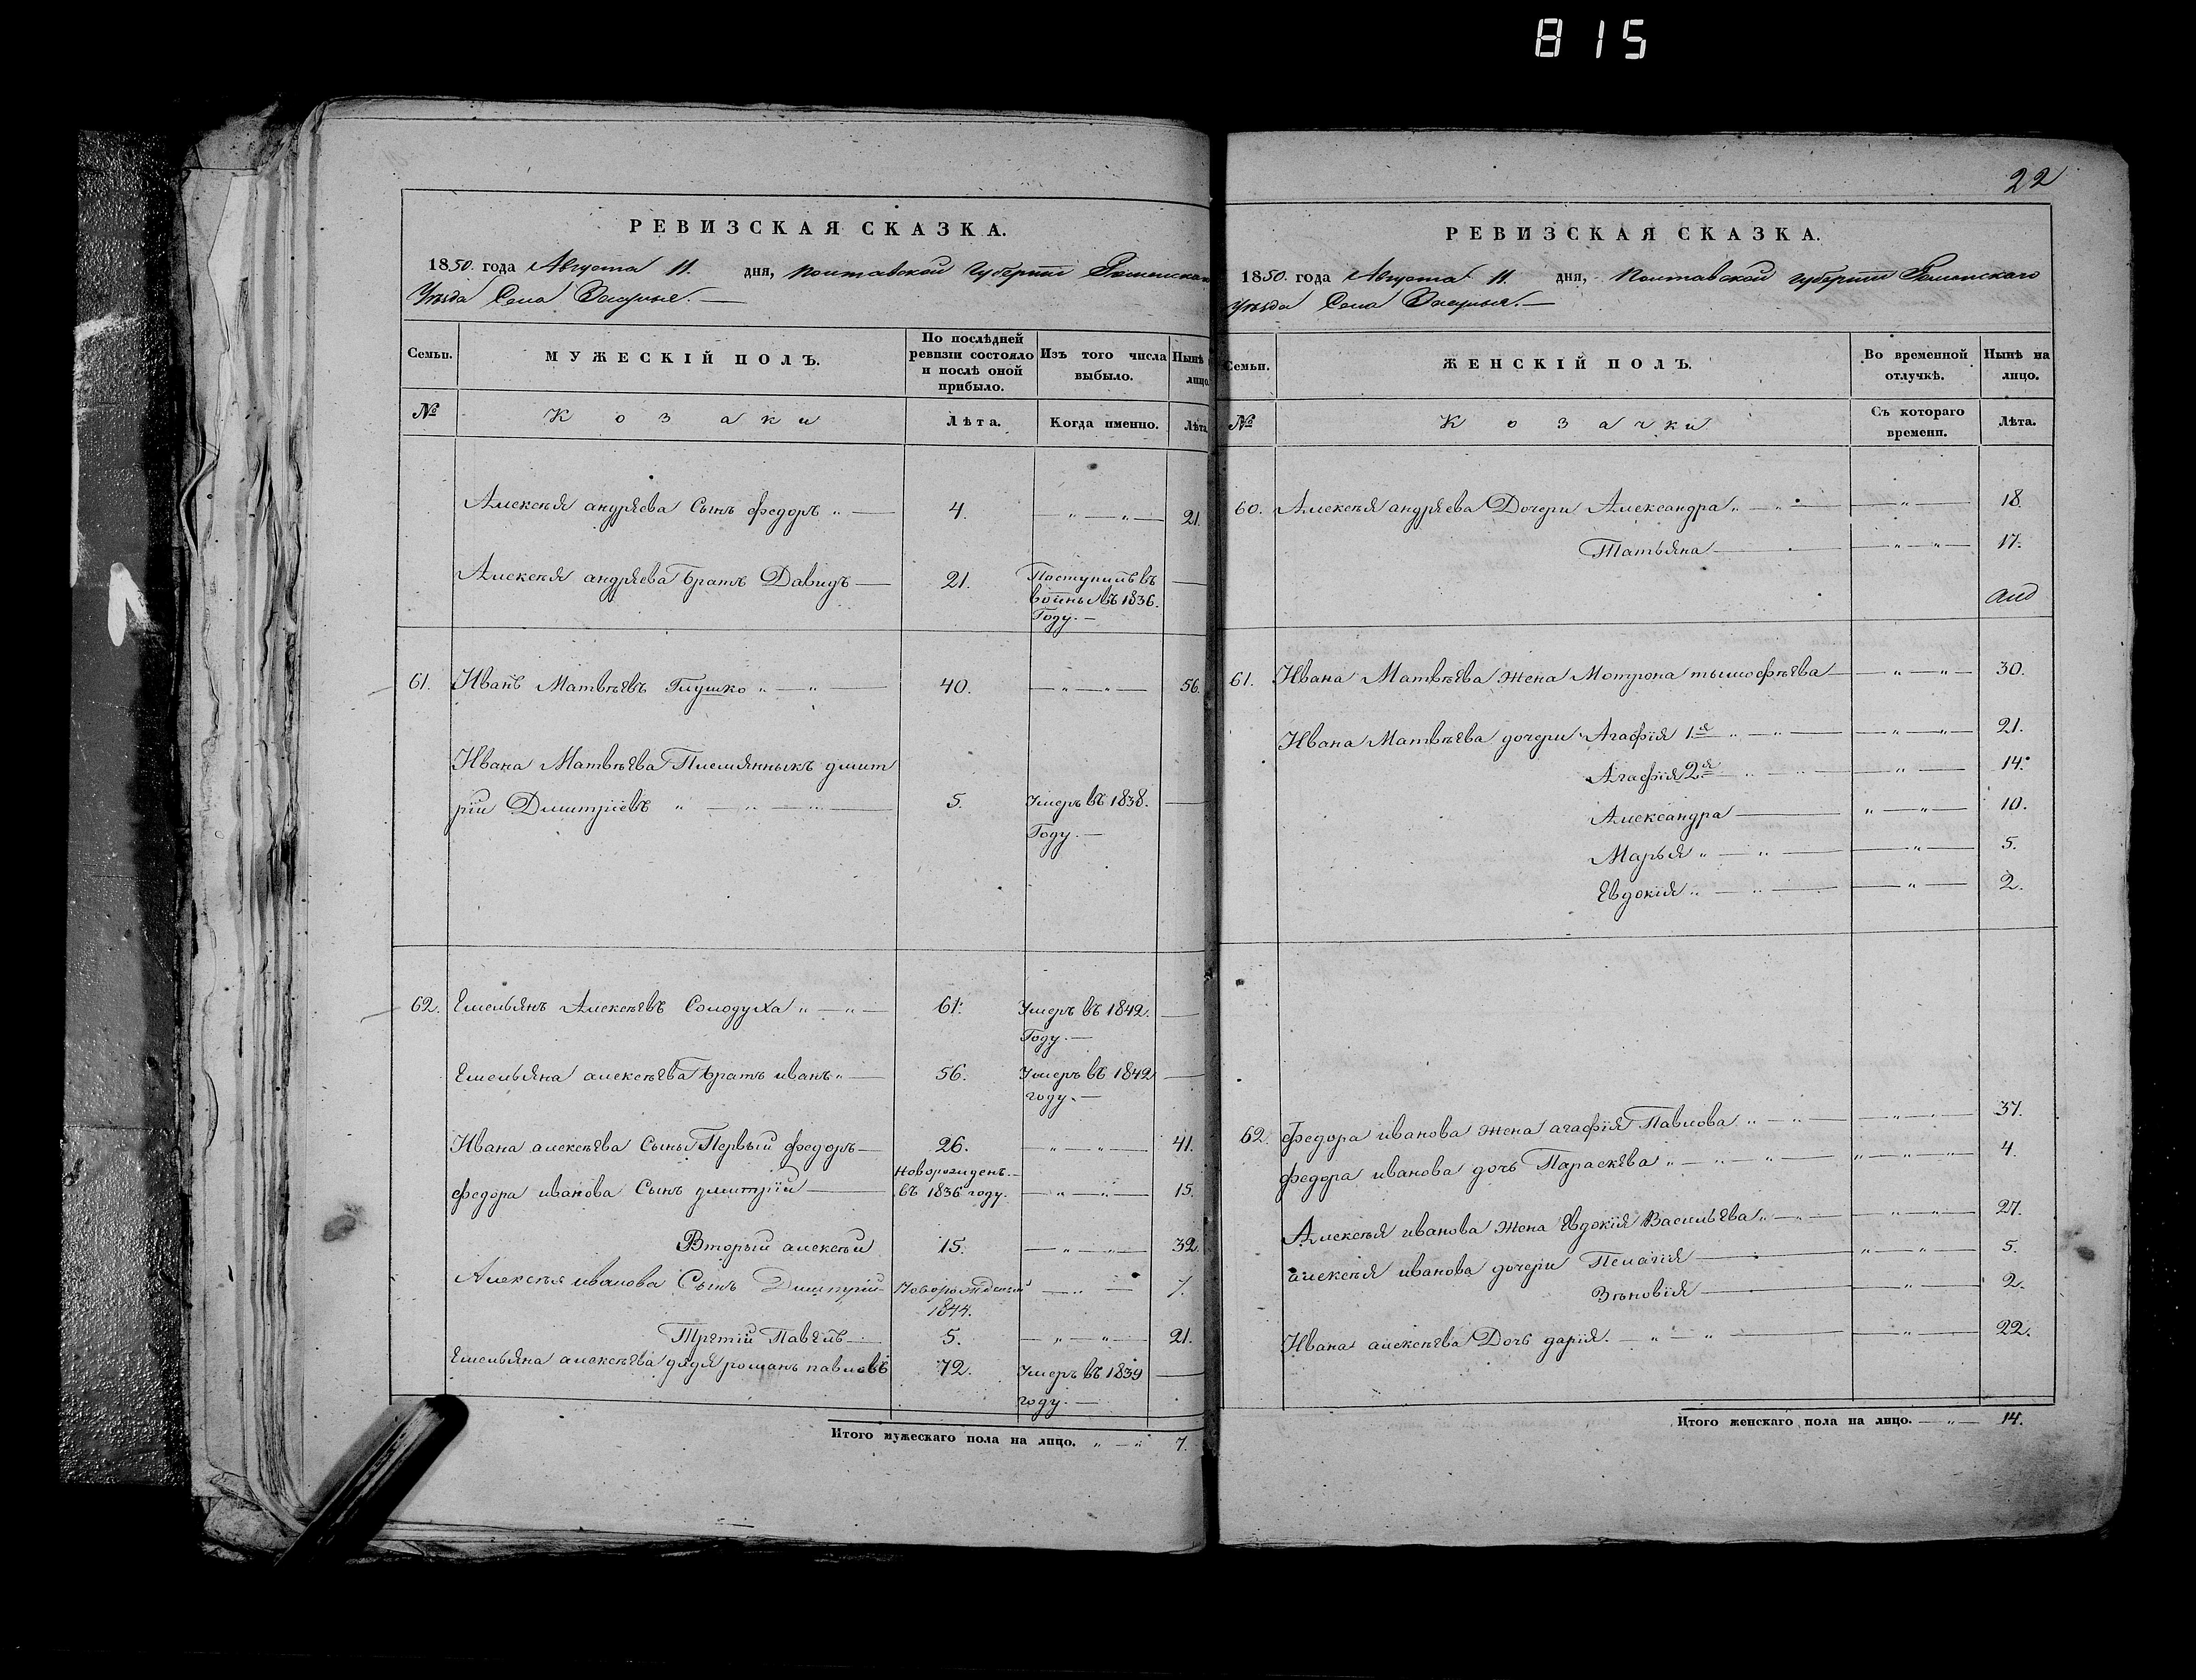 815
РЕВИЗСКАЯ СКАЗКА.
1850. года Августа 11. дня, Полтавской Губерніи Роменскаго
Уѣзда Села Засулья. —
Семьи. МУЖЕСКІЙ ПОЛЪ. По послѣдней ревизіи состояло и послѣ оной прибыло. Изъ того числа выбыло. Нынѣ лицо.
№ Козаки Лѣта. Когда именно. Лѣта.
Алексѣя андрѣева Сынъ федоръ 4. 21.
Алексѣя андрѣева братъ Давидъ 21. Поступилъ въ
войны въ 1836.
Году.
61. Иванъ Матвѣевъ Глушко 40. 56.
Ивана Матвѣева Племянныкъ дмит
рій Дмитріевъ 5. Умеръ въ 1838.
Году.
62. Емельянъ Алексѣевъ Солодуха 61. Умеръ въ 1842.
Году.
Емельяна алексѣева братъ иванъ 56. Умеръ въ 1842
году.
Ивана алексѣева Сыны Первый федоръ 26. 41.
новорожденъ
федора иванова Сынъ дмитрій въ 1836 году. 15.
Вторый алексѣй 15. 32.
Алексѣя иванова Сынъ Дмитрій Новорожденый 7.
1844.
Третій Павелъ 5. 21.
Емельяна алексѣева дядя романъ павловъ 72. Умеръ въ 1839
году.
Итого мужескаго пола на лицо. 7.
22
РЕВИЗСКАЯ СКАЗКА.
1850. года Августа 11. дня, Полтавской губерніи Роменскаго
Уѣзда Села Засулья. —
Семьи. ЖЕНСКІЙ ПОЛЪ. Во временной отлучкѣ. Нынѣ на лицо.
№ Козачки Съ котораго времени. Лѣта.
60. Алексѣя андрѣева Дочери Александра 18.
Татьяна 17.
61. Ивана Матвѣева жена Мотрона тымофѣева 30.
Ивана Матвѣева дочери Агафія 1я 21.
Агафія 2я 14.
Александра 10.
Марья 5.
Евдокія 2.
62. федора иванова жена агафія Павлова 37.
федора иванова дочь Параскева 4.
Алексѣя иванова жена Евдокія Васильева 27.
алексѣя иванова дочери Пелагія 5.
Зѣновія 2.
Ивана алексѣева Дочь дарія. 22.
Итого женскаго пола на лицо. 14.